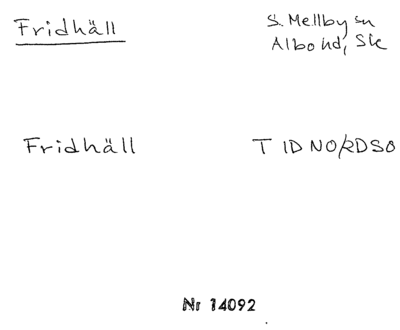 Fridhäll
S. Mellby sn
Albo hd, Sk
Fridhäll
T ID NO/RDSO
Nr 14092